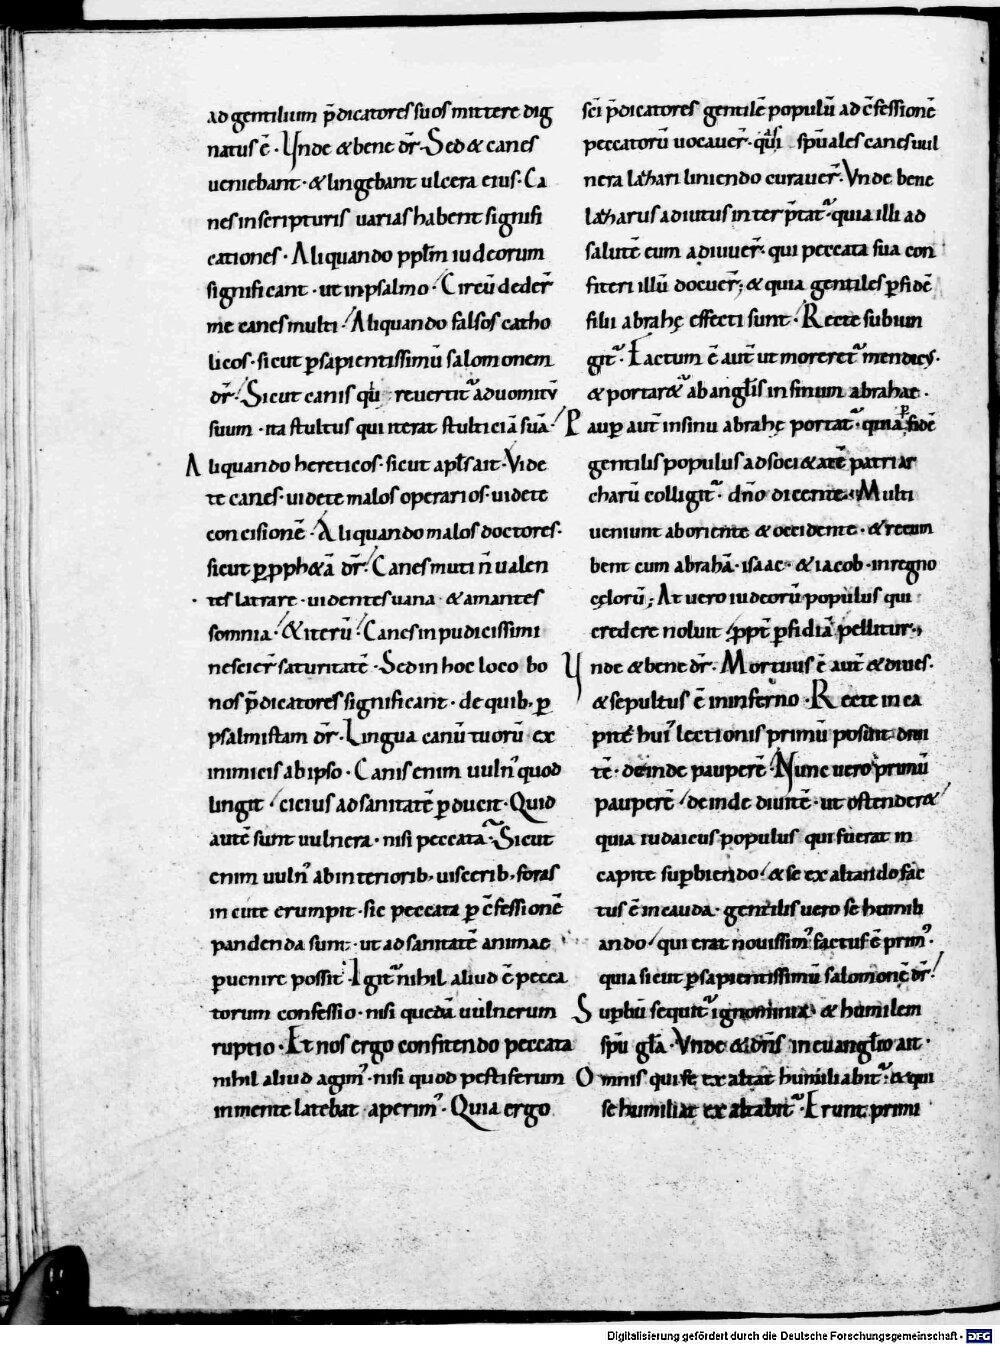 ad gentilium p̄dicatores suos mittere dig
natus ē. Vnde & bene dr̄. Sed & canes
ueniebant. & lingebant ulcera eius. Ca
nes inscripturis uarias habent signifi
cationes. Aliquando ppl̄m iudeorum
significant. ut inpsalmo. Circū deder̄
me canes multi. Aliquando falsos catho
licos. sicut ꝑ sapientissimū salomonem
dr̄. Sicut canis qui reuertit᷑ aduomitū
suum. ita stultus qui iterat stulticiā suā.
Aliquando hereticos. sicut apl̄s ait. Vide
te canes. uidete malos operarios. uidete
concisionē. Aliquando malos doctores.
sicut ꝑ pph&ā dr̄. Canes muti n̄ ualen
tes latrare. uidentes uana & amantes
somnia. & iterū. Canes inpudicissimi
nescier̄ saturitatē. Sed in hoc loco bo
nos p̄dicatores significant. de quib; ꝑ
psalmistam dr̄. Lingua canū tuorū ex
inimicis ab ipso. Canis enim uuln᾽ quod
lingit. cicius ad sanitatē ꝑducit. Quid
autē sunt uulnera. nisi peccata. Sicut
enim uuln᾽ ab interiorib; uiscerib; foras
in cute erumpit. sic peccata ꝑ c̄fessionē
pandenda sunt. ut ad sanitatē animae
ꝑuenire possit. Igit᷑ nihil aliud ē pecca
torum confessio. nisi quedā uulnerum
ruptio. Et nos ergo confitendo peccata
nihil aliud agim᾽. nisi quod pestiferum
in mente latebat aperim᾽. Quia ergo
sc̄i p̄dicatores gentilē populū ad c̄fessionē
peccatorū uocauer̄. quasi spū ales canes uul
nera lazari liniendo curauer̄. Vnde bene
lazarus adiutus interp̄tat᷑. quia illi ad
salutē eum adiuuer̄. qui peccata sua con
fiteri illū docuer̄; & quia gentiles ꝑ fidē
filii abrahę effecti sunt. Recte subiun
git᷑. Factum ē aut̄ ut morer&᷑ mendic᾽.
& portar&᷑ ab angl̄is in sinum abrahae.
Paup̄ aut̄ in sinu abrahę portat᷑. quia ꝑ fidē
gentilis populus ad soci&atē patriar
charū colligit᷑. dn̄o dicente. Multi
ueniunt ab oriente & occidente. & recum
bent cum abrahā. isaac. & iacob. in regno
cęlorū; At uero iudeorū populus qui
credere noluit. ppt̄ ꝑfidiā pellitur;
Vnde & bene dr̄. Mortuus ē aut̄ & diues.
& sepultus ē in inferno. Recte in ca
pite hui᾽ lectionis primū posuit diui
tē. deinde pauperē. Nunc uero primū
pauperē. deinde diuitē. ut ostender&
quia iudaicus populus qui fuerat in
capite suꝑbiendo. & se exaltando fac
tus ē in cauda. gentilis uero se humili
ando. qui erat nouissim᾽ factus ē prim᾽.
quia sicut ꝑ sapientissimū salomonē dr̄.
Suꝑbū sequit᷑ ignominia. & humilem
spū gl̄a. Vnde & dn̄s in euangl̄io ait.
Omnis qui se exaltat humiliabit᷑. & qui
se humiliat exaltabit᷑. Erunt primi
Digitalisierung gefördert durch die Deutsche Forschungsgemeinschaft - DFG